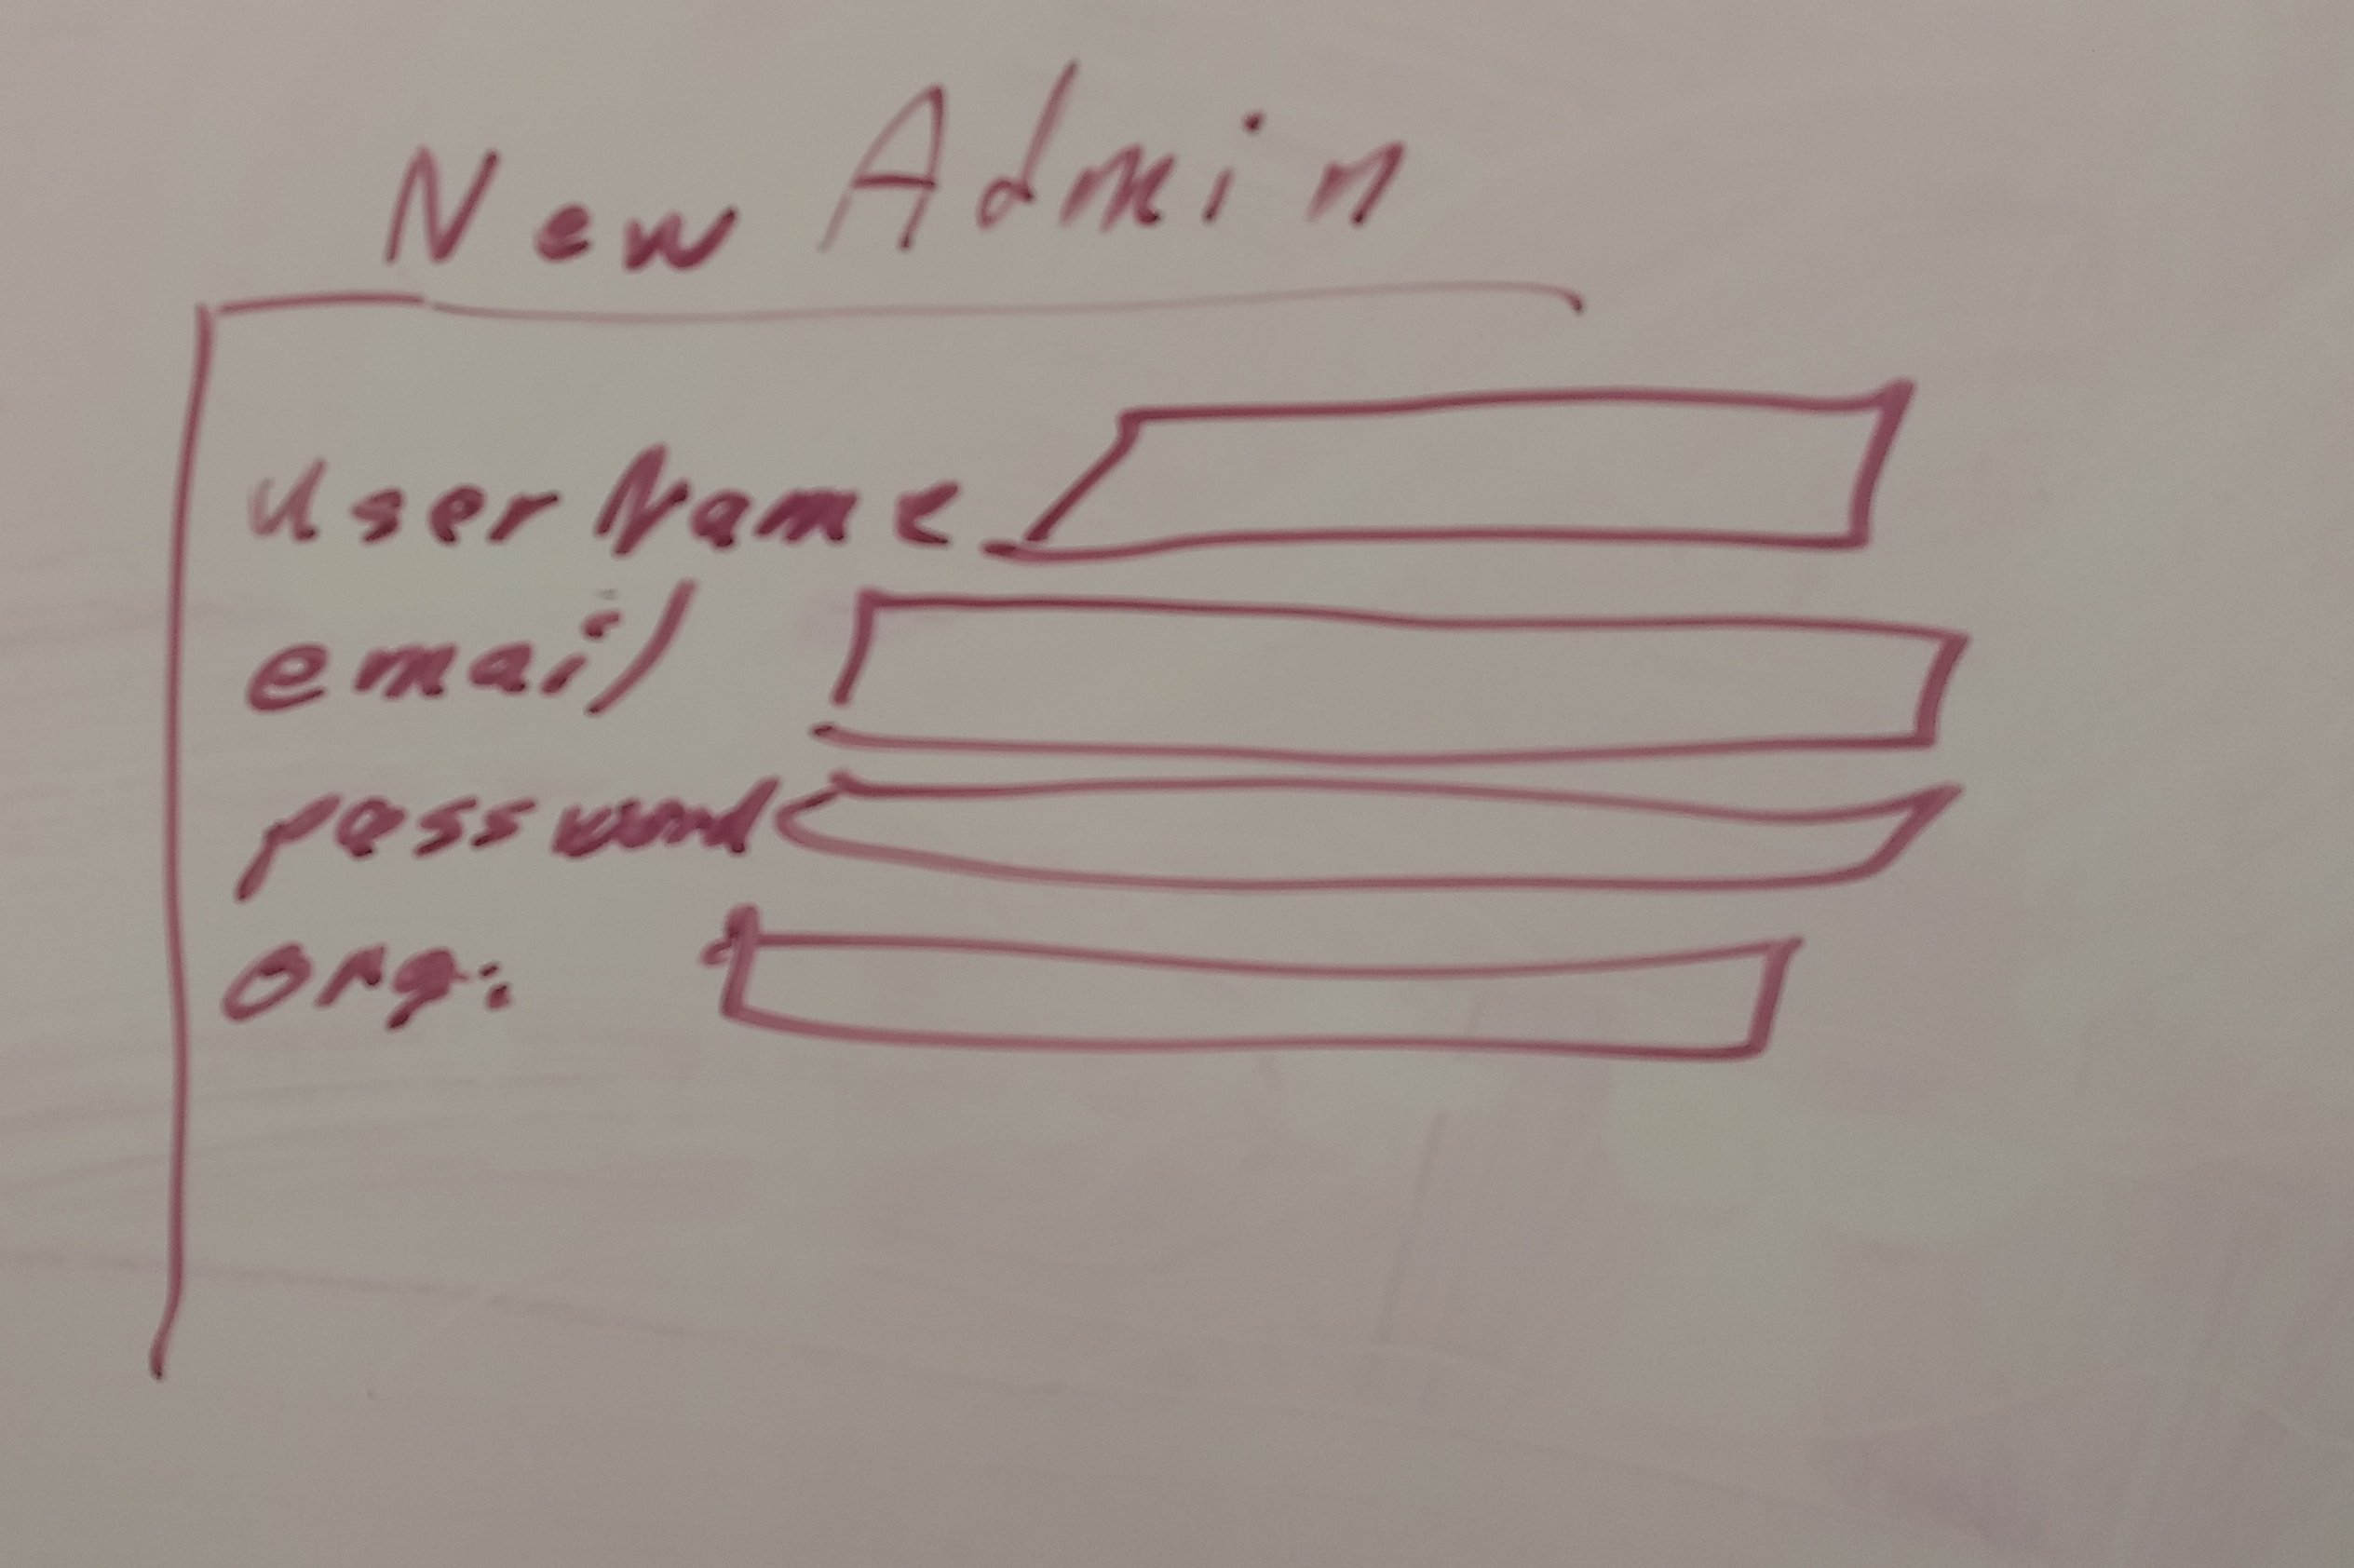 New Admin
userName
email
password
org: